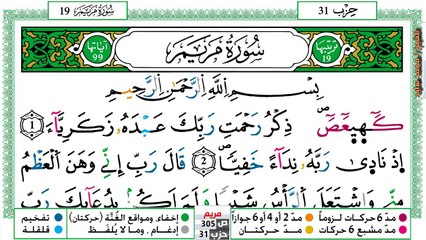 حِزْب 31
سُورَةُ مَرْيَمَ 19
ترتيبها 19
سُورَةُ مَرْيَمَ
آياتها 99
بِسْمِ اِ۬للَّهِ اِ۬لرَّحْمَٰنِ اِ۬لرَّحِيمِ
كَٓهيعَٓصَٓ ذِكْرُ رَحْمَتِ رَبِّكَ عَبْدَهُۥ زَكَرِيَّآءَ 1
إِذْ نَادَىٰ رَبَّهُۥ نِدَآءً خَفِيّٗا 2 قَالَ رَبِّ إِنِّے وَهَنَ اَ۬لْعَظْمُ
مِنِّے وَاشْتَعَلَ اَ۬لرَّأْسُ شَيْبٗا وَلَمَ اَكُنۢ بِدُعَآئِكَ رَبِّ
مدّ 6 حركات لزوماً مدّ 2 أو 4 أو 6 جوازاً مريم ص 305 إخفاء، ومواقع الغُنَّة (حركتان) تفخيم
مدّ مشبع 6 حركات مدّ حركتان حزب 31 إدغام، وما لا يُلفَظ قلقلة